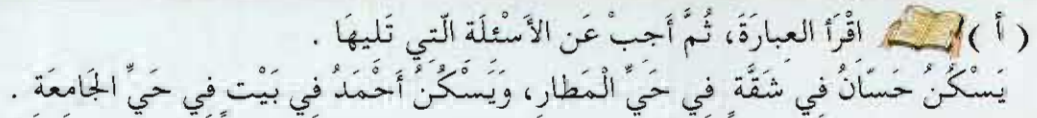 ( أ ) اقْرَأ العِبارَةَ، ثُمَّ أَجِبْ عَنِ الأَسْئِلَة الّتِي تَليهَا .
يَسْكُنُ حَسّانُ فِي شَقَّةٍ فِي حَيِّ الْمَطارِ، وَيَسْكُنُ أَحْمَدُ فِي بَيْتٍ فِي حَيِّ الجَامعَةِ .